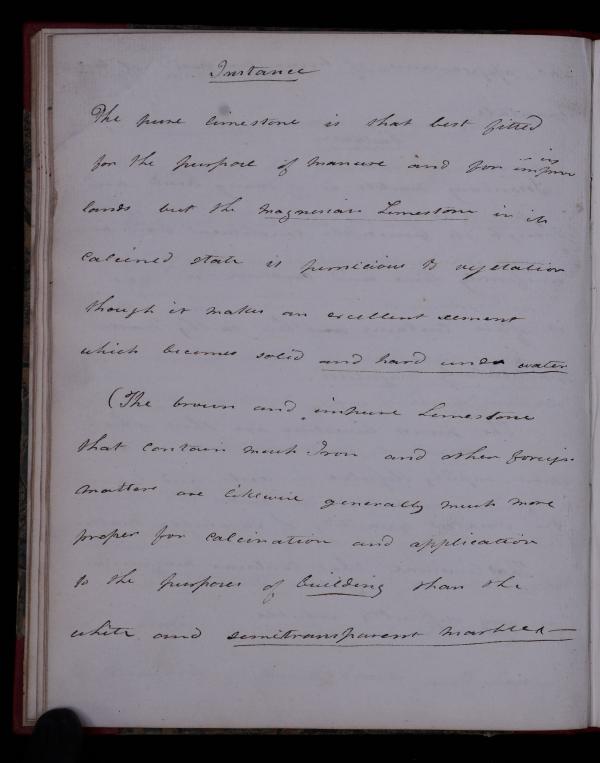 Instance
The pure Limestone is that best fitted
for the purpose of manure and for improving
lands but the magnesian Limestone in its
calcined state is pernicious to vegetation
though it makes an excellent cement
which becomes solid and hard under water
(The brown and impure Limestone
that contain much Iron and other foreign
matters are likewise generally much more
proper for calcination and application
to the purposes of building than the
white and semitransparent marbles —